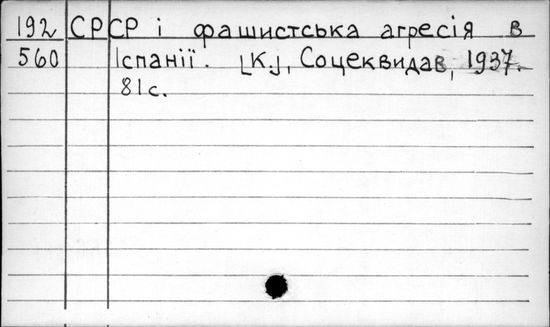 192 СРСР і фашистська агресія в
560 Іспанії. [К.], Соцеквидав, 1937.
81с.